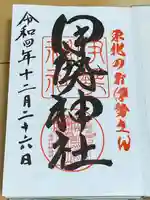 東北のお伊勢さん
神社
令和四年十二月二十六日